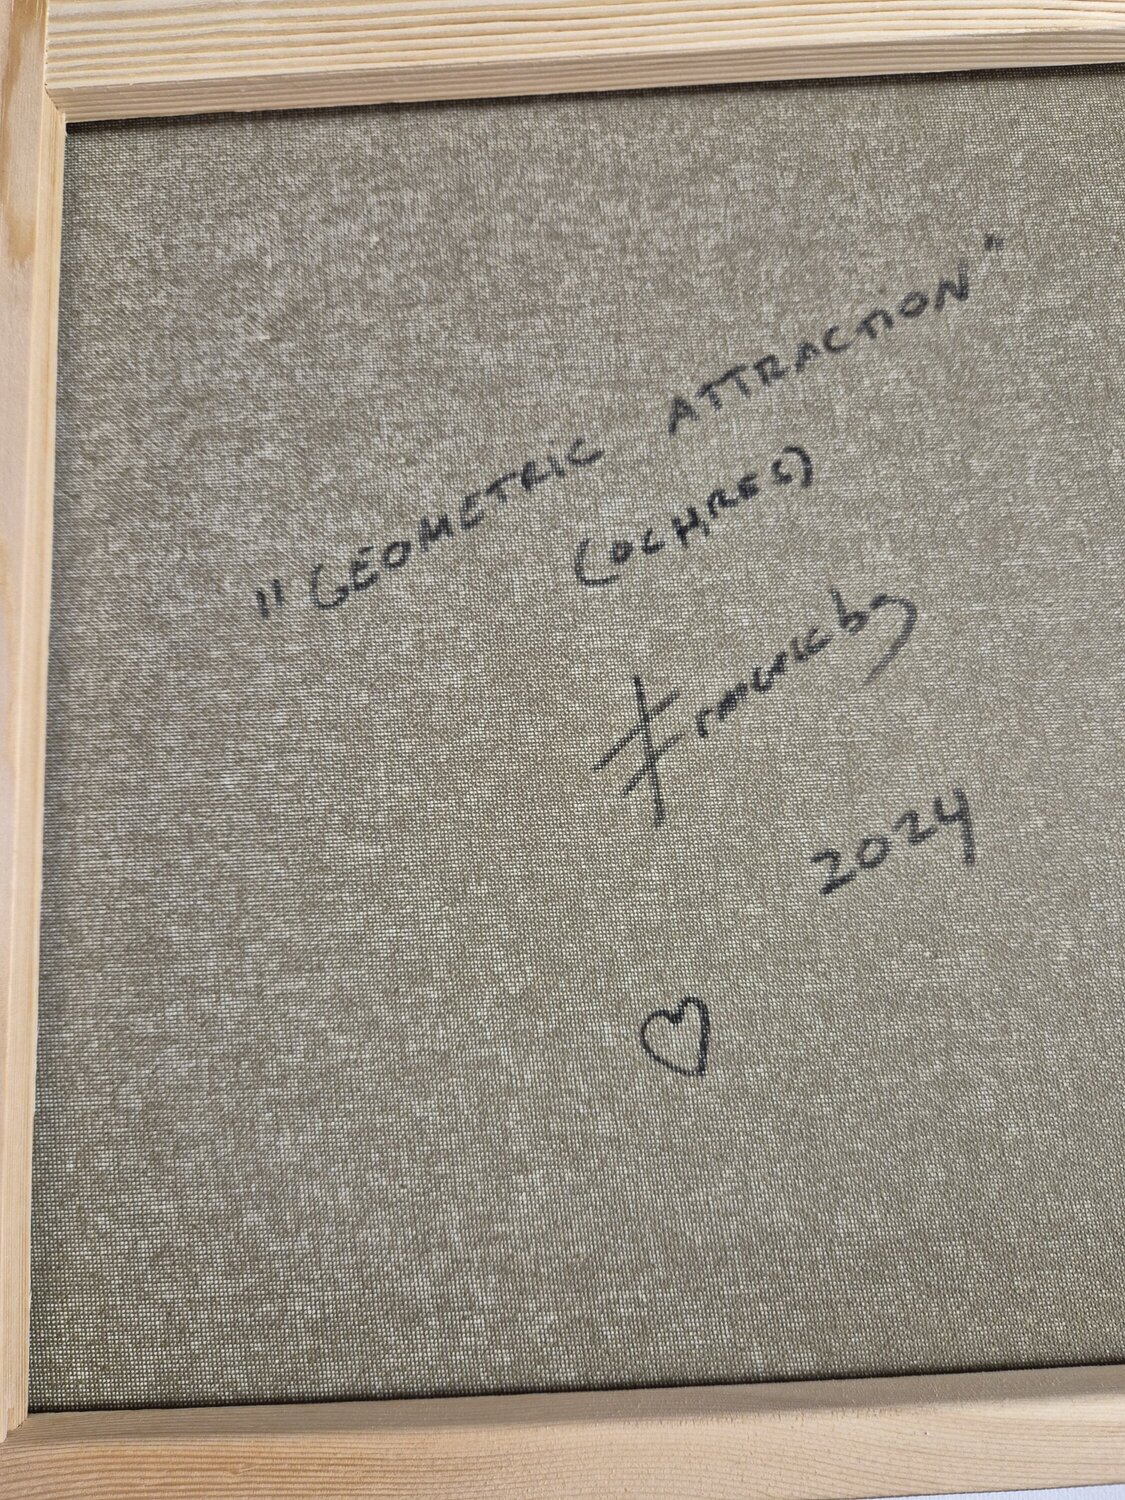 "GEOMETRIC ATTRACTION"
(OCHRES)
2024